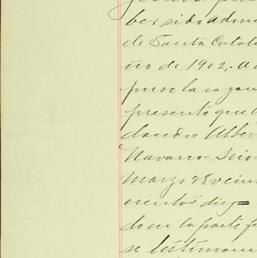 ber sido adm
de Santa Catal
ño de 1902, a
puso la razon
presento que
dando Alber
Navarro
marzo 28 vein
cientos diez
do en la parte
se testimon